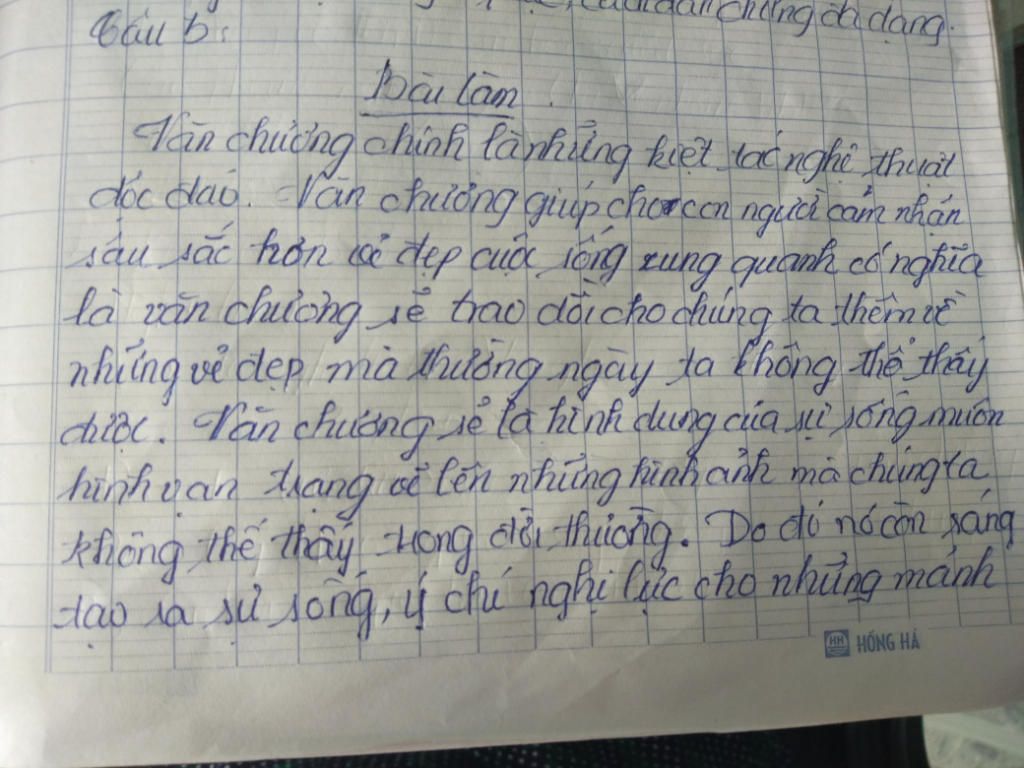 dẫn chứng đa dạng.
Câu b:
Bài làm
Văn chương chính là những kiệt tác nghệ thuật
độc đáo. Văn chương giúp cho con người cảm nhận
sâu sắc hơn vẻ đẹp cuộc sống xung quanh có nghĩa
là văn chương sẽ trao dồi cho chúng ta thêm về
những vẻ đẹp mà thường ngày ta không thể thấy
được. Văn chương sẽ là hình dung của sự sống muôn
hình vạn trạng vẽ lên những hình ảnh mà chúng ta
không thể thấy trong đời thường. Do đó nó còn sáng
tạo ra sự sống, ý chí nghị lực cho những mảnh
HỒNG HÀ